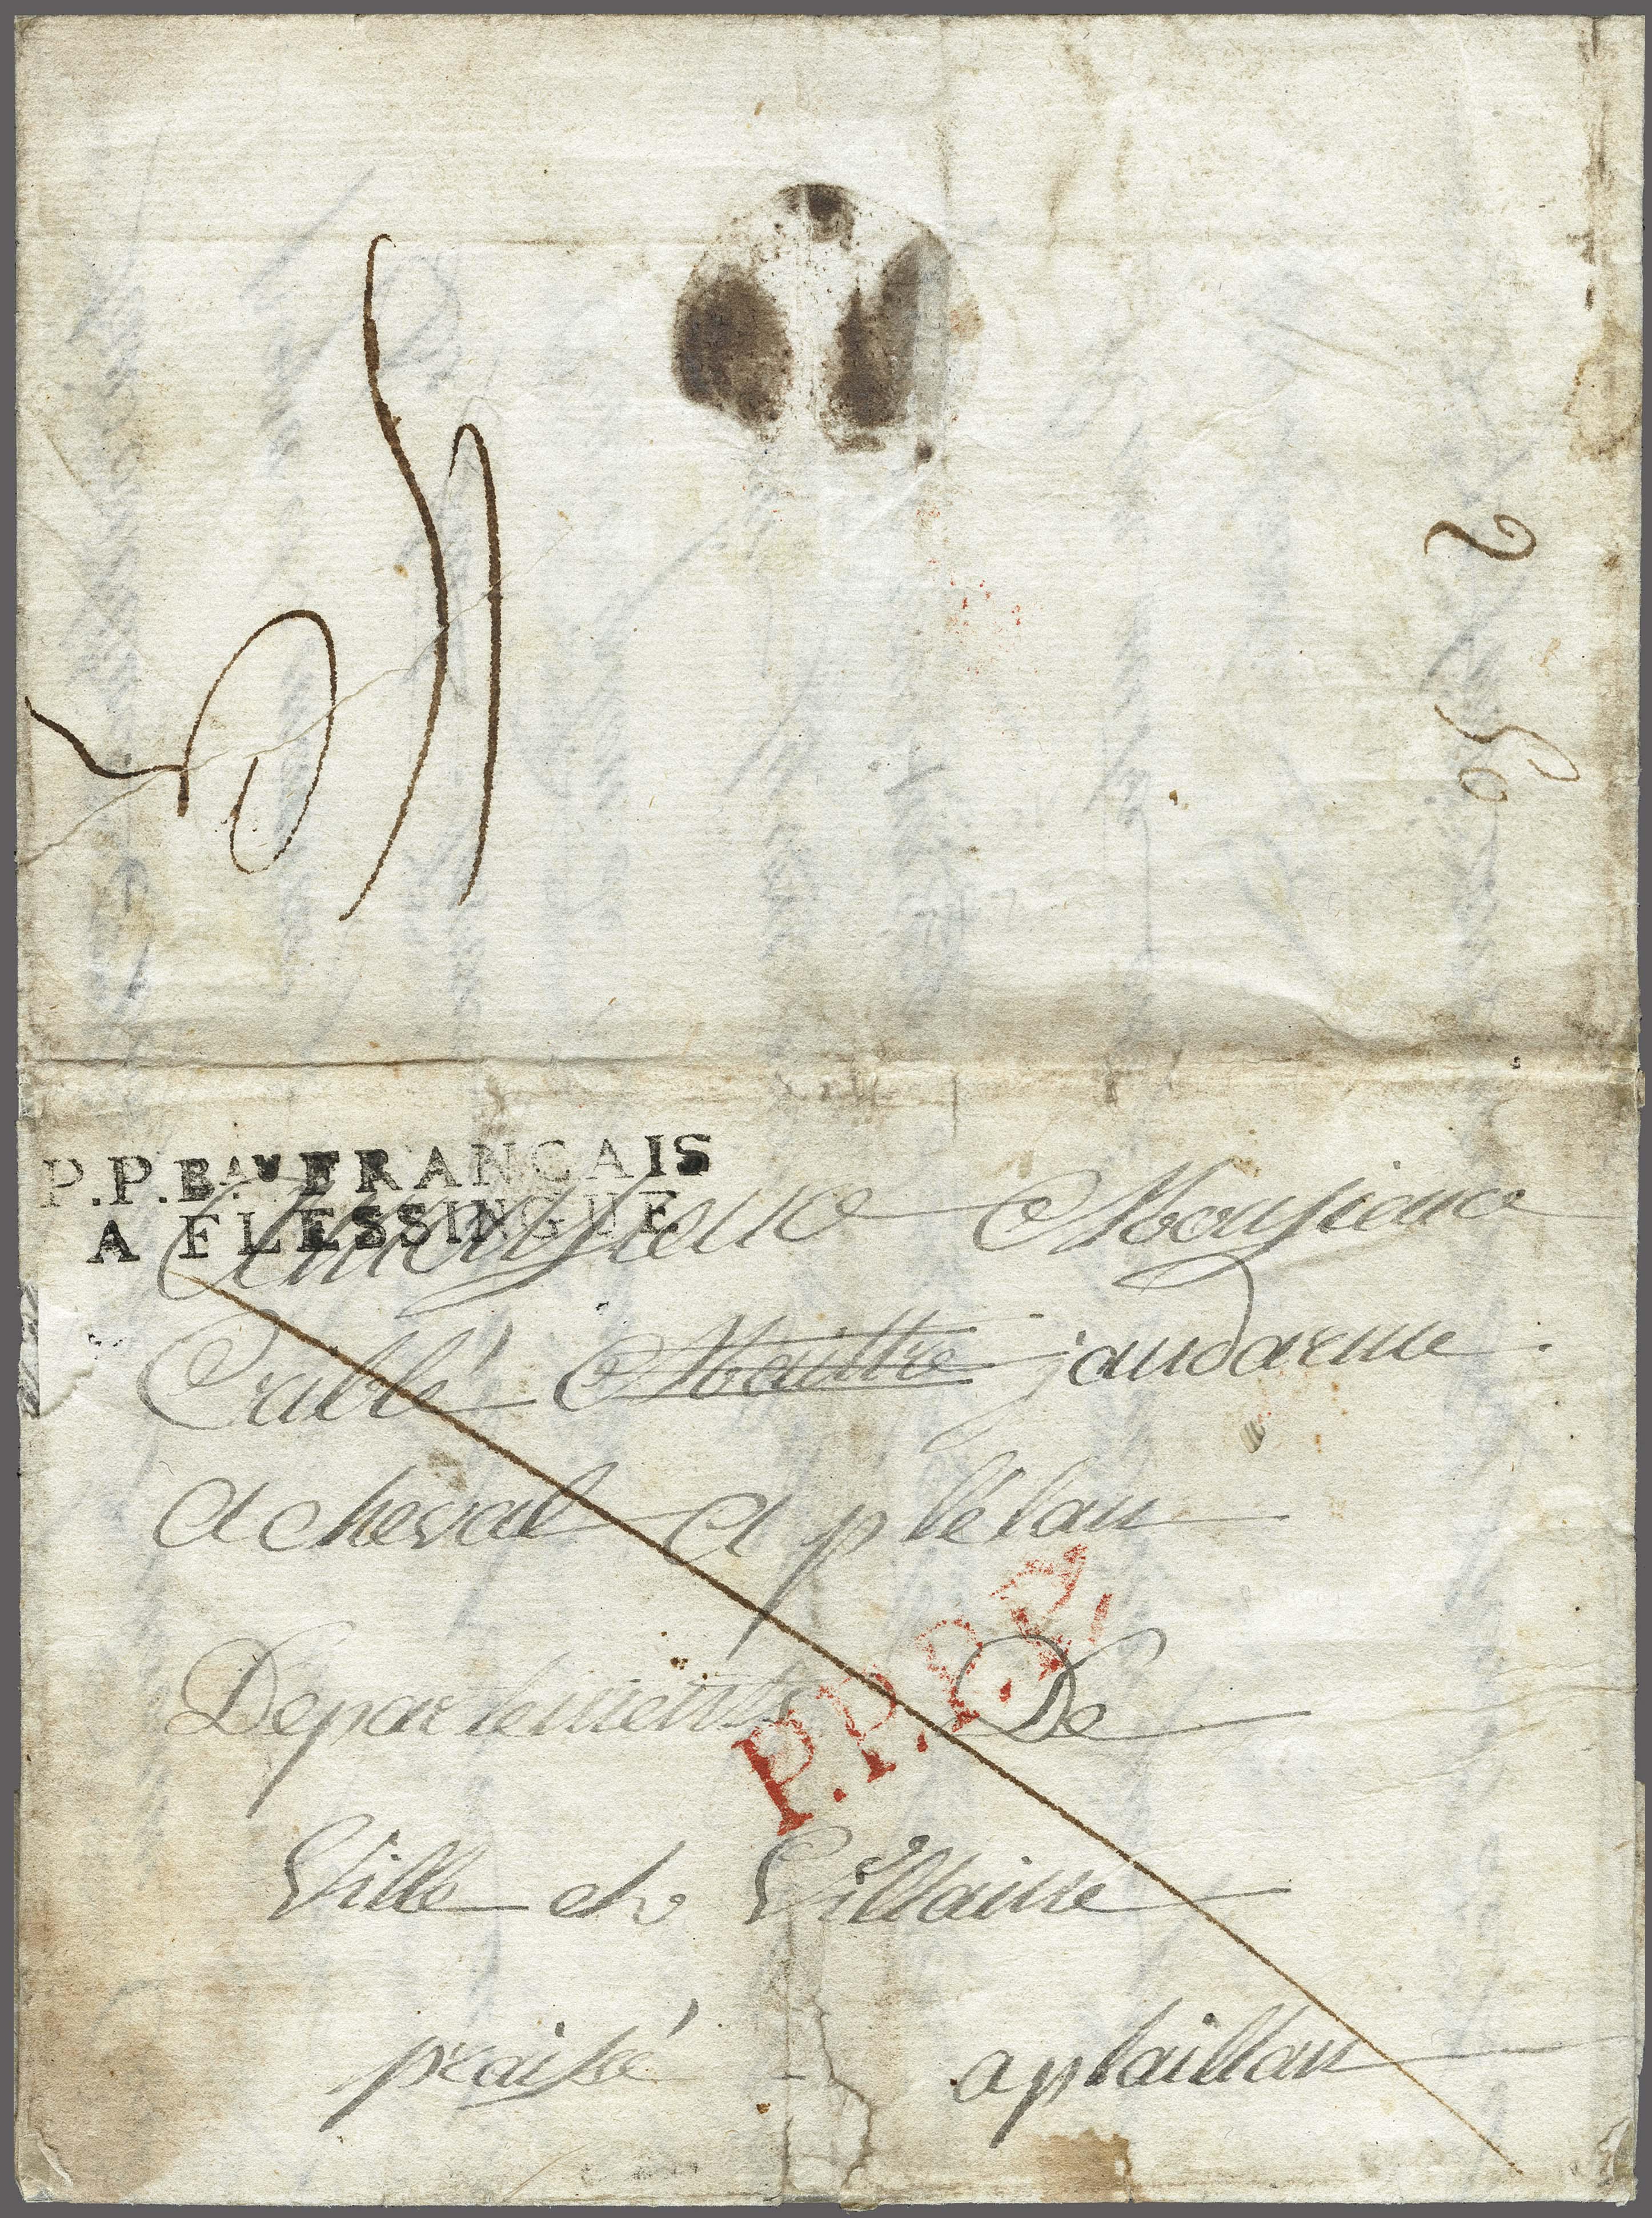 2 50
P.P.B.AU FRANCAIS
A FLESSINGUE
Amonsieur Monsieur
Crublé Maittre jandarme
A cheval A plelan
Departements De
Ville eh Villainne
praissé aplaillan
P.P.P.P.